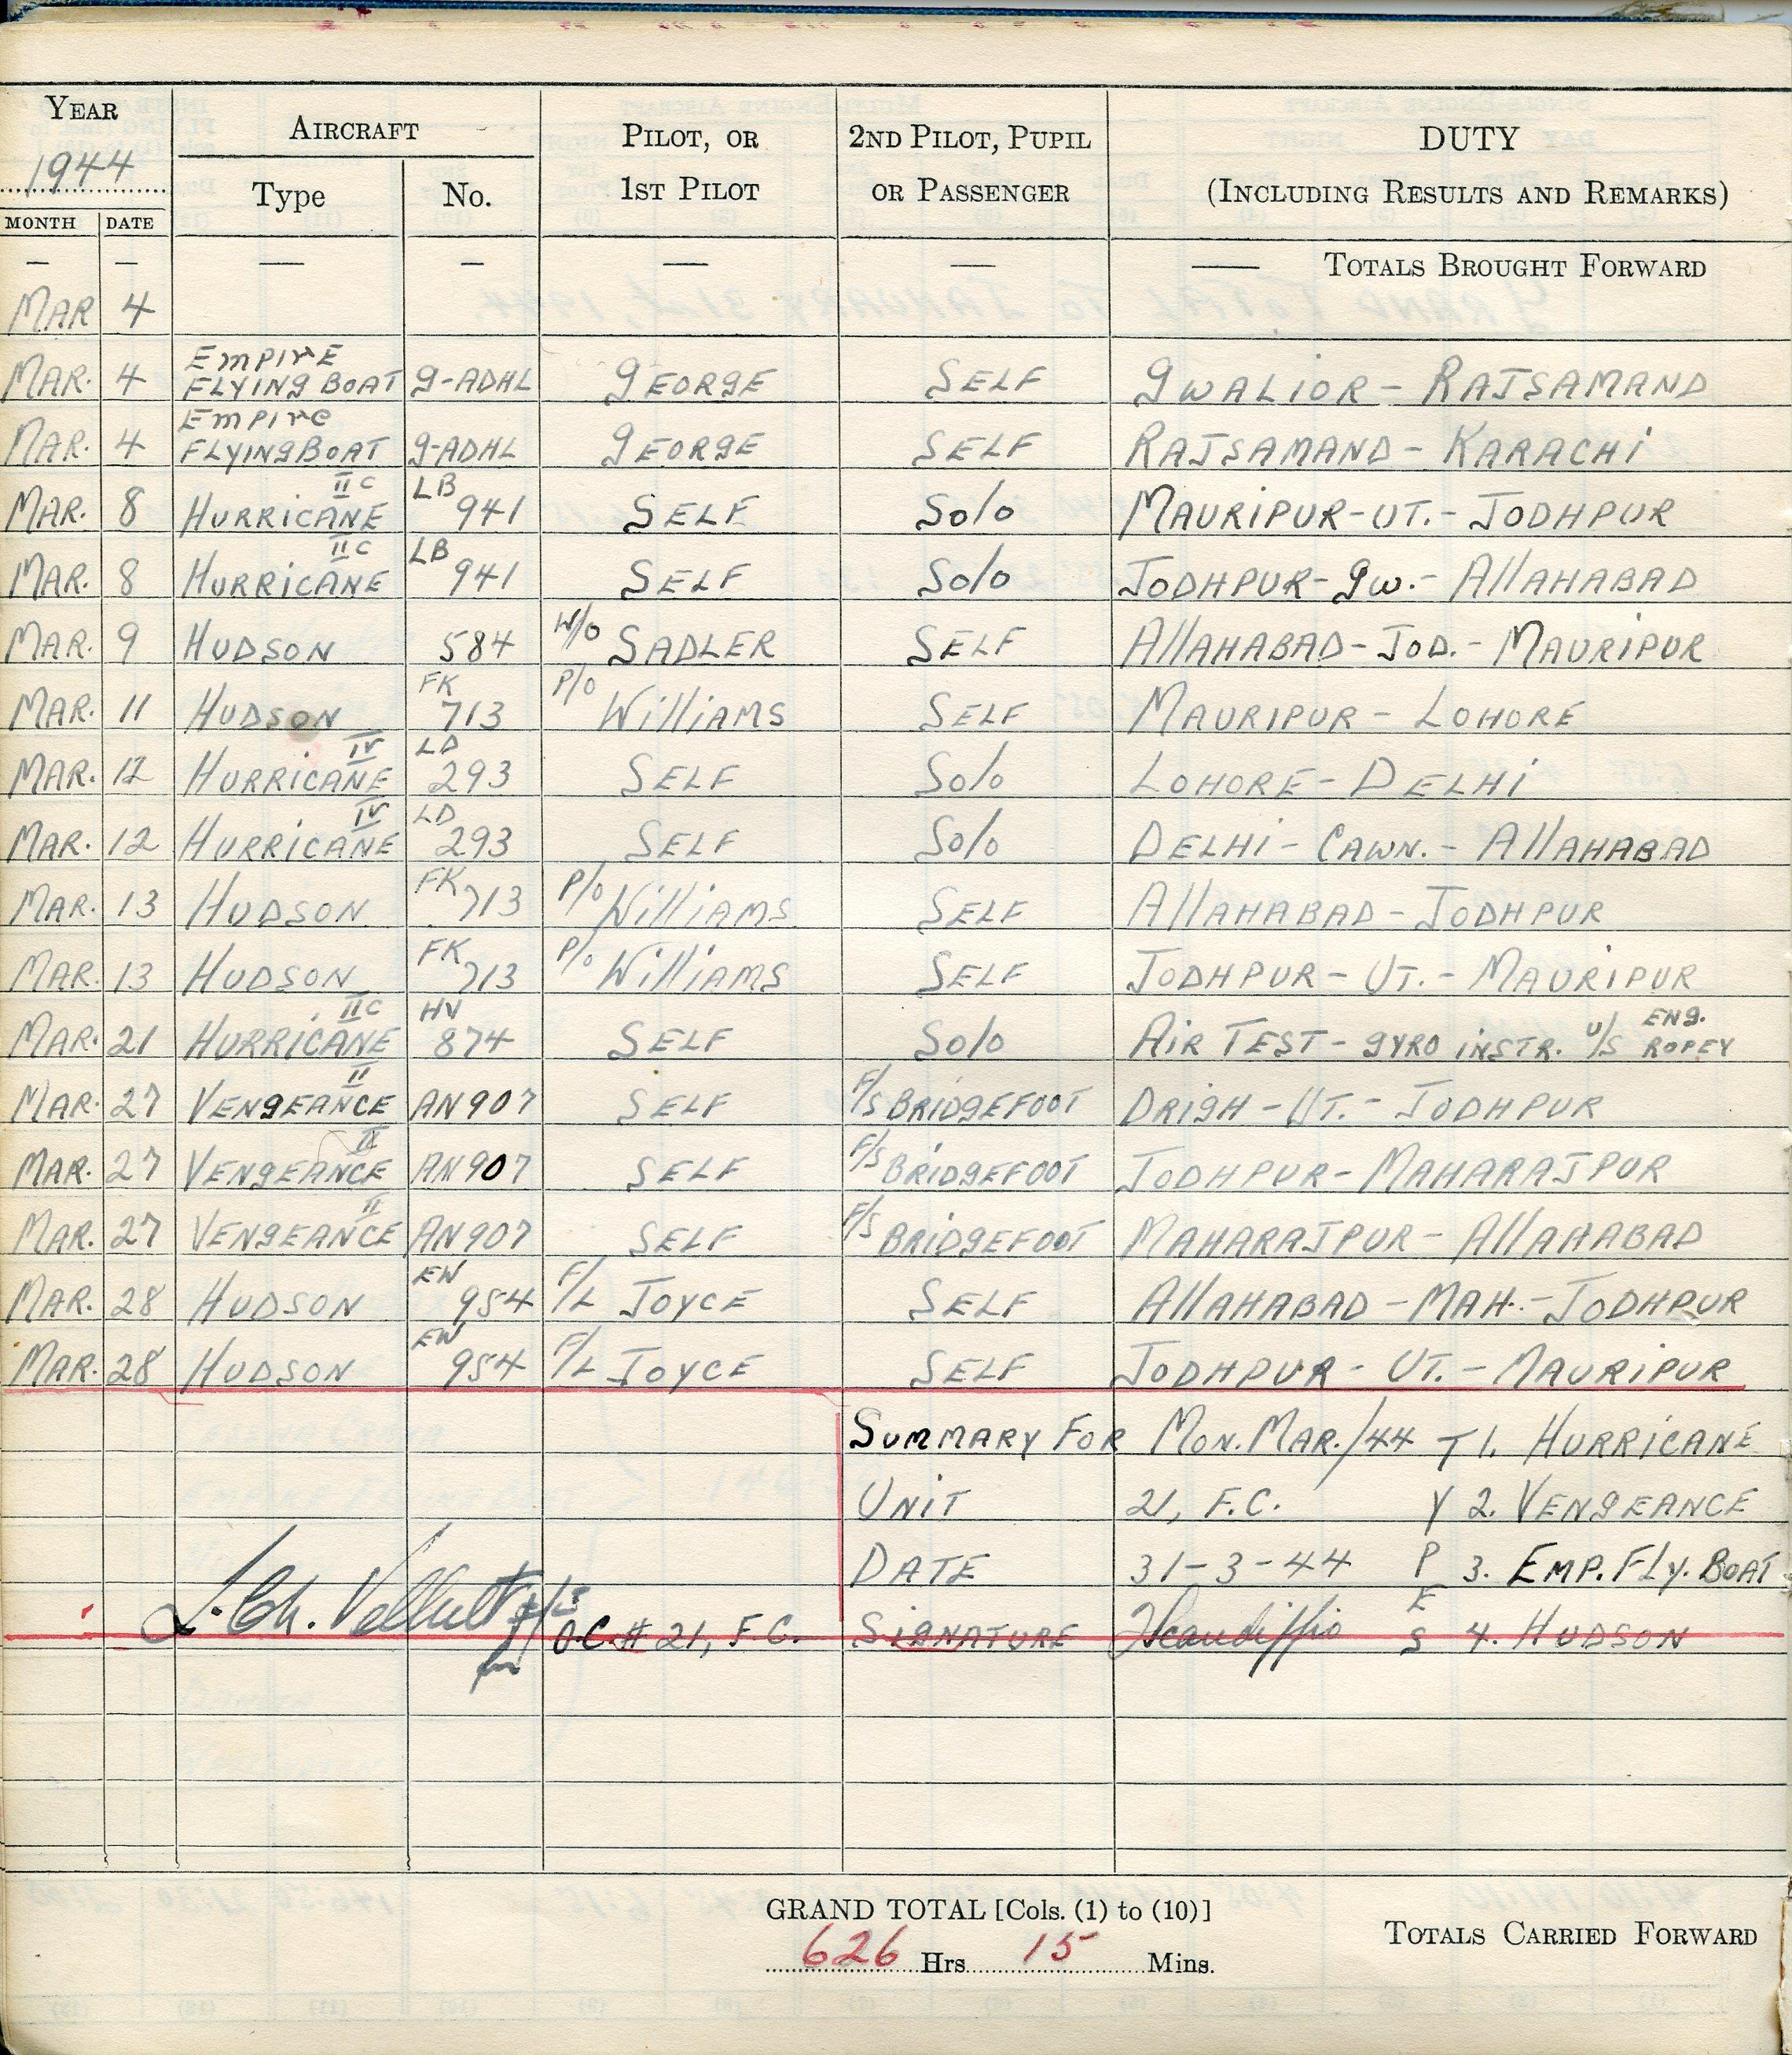 YEAR AIRCRAFT PILOT, OR 2ND PILOT, PUPIL DUTY
1944 Type No. 1ST PILOT OR PASSENGER (INCLUDING RESULTS AND REMARKS)
MONTH DATE
— — — — — — —— TOTALS BROUGHT FORWARD
MAR 4
MAR. 4 EMPIRE FLYING BOAT G-ADHL GEORGE SELF GWALIOR - RAJSAMAND
MAR. 4 EMPIRE FLYING BOAT G-ADHL GEORGE SELF RAJSAMAND - KARACHI
MAR. 8 HURRICANE IIC LB 941 SELF SOLO MAURIPUR-UT.- JODHPUR
MAR. 8 HURRICANE IIC LB 941 SELF SOLO JODHPUR- GW.- ALLAHABAD
MAR. 9 HUDSON 584 W/O SADLER SELF ALLAHABAD- JOD.- MAURIPUR
MAR. 11 HUDSON FK 713 P/O WILLIAMS SELF MAURIPUR - LOHORE
MAR. 12 HURRICANE IV LD 293 SELF SOLO LOHORE- DELHI
MAR. 12 HURRICANE IV LD 293 SELF SOLO DELHI - CAWN. - ALLAHABAD
MAR. 13 HUDSON FK 713 P/O WILLIAMS SELF ALLAHABAD - JODHPUR
MAR. 13 HUDSON FK 713 P/O WILLIAMS SELF JODHPUR - UT. - MAURIPUR
MAR. 21 HURRICANE IIC HV 874 SELF SOLO AIR TEST - GYRO INSTR. U/S ENG. ROPEY
MAR. 27 VENGEANCE II AN907 SELF F/S BRIDGEFOOT DRIGH - UT. - JODHPUR
MAR. 27 VENGEANCE II AN907 SELF F/S BRIDGEFOOT JODHPUR- MAHARAJPUR
MAR. 27 VENGEANCE II AN907 SELF F/S BRIDGEFOOT MAHARAJPUR - ALLAHABAD
MAR. 28 HUDSON EW 954 F/L JOYCE SELF ALLAHABAD - MAH. - JODHPUR
MAR. 28 HUDSON EW 954 F/L JOYCE SELF JODHPUR - UT. - MAURIPUR
SUMMARY FOR MON. MAR./44 T 1. HURRICANE
UNIT 21, F.C. Y 2. VENGEANCE
DATE 31-3-44 P 3. EMP. FLY. BOAT
O.C. # 21, F.C. SIGNATURE E S 4. HUDSON
for
GRAND TOTAL [Cols. (1) to (10)]
626 Hrs. 15 Mins.
TOTALS CARRIED FORWARD